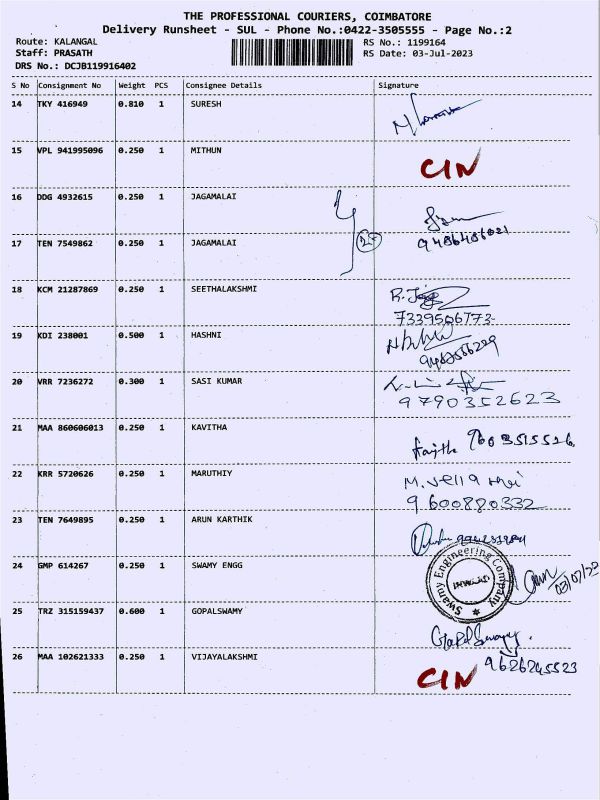 THE PROFESSIONAL COURIERS, COIMBATORE
Delivery Runsheet - SUL - Phone No.:0422-3505555 - Page No.:2
Route: KALANGAL RS No.: 1199164
Staff: PRASATH RS Date: 03-Jul-2023
DRS No.: DCJB119916402
S No Consignment No Weight PCS Consignee Details Signature
14 TKY 416949 0.810 1 SURESH
15 VPL 941995096 0.250 1 MITHUN CIN
16 DDG 4932615 0.250 1 JAGAMALAI
17 TEN 7549862 0.250 1 JAGAMALAI 9486486021
18 KCM 21287869 0.250 1 SEETHALAKSHMI
7339506773
19 KDI 238001 0.500 1 HASHNI
20 VRR 7236272 0.300 1 SASI KUMAR
9790352623
21 MAA 860606013 0.250 1 KAVITHA
9603515526
22 KRR 5720626 0.250 1 MARUTHIY
9600880332
23 TEN 7649895 0.250 1 ARUN KARTHIK
24 GMP 614267 0.250 1 SWAMY ENGG
Swamy Engineering Company
INWARD
03/07/23
25 TRZ 315159437 0.600 1 GOPALSWAMY
26 MAA 102621333 0.250 1 VIJAYALAKSHMI
9626245523
CIN